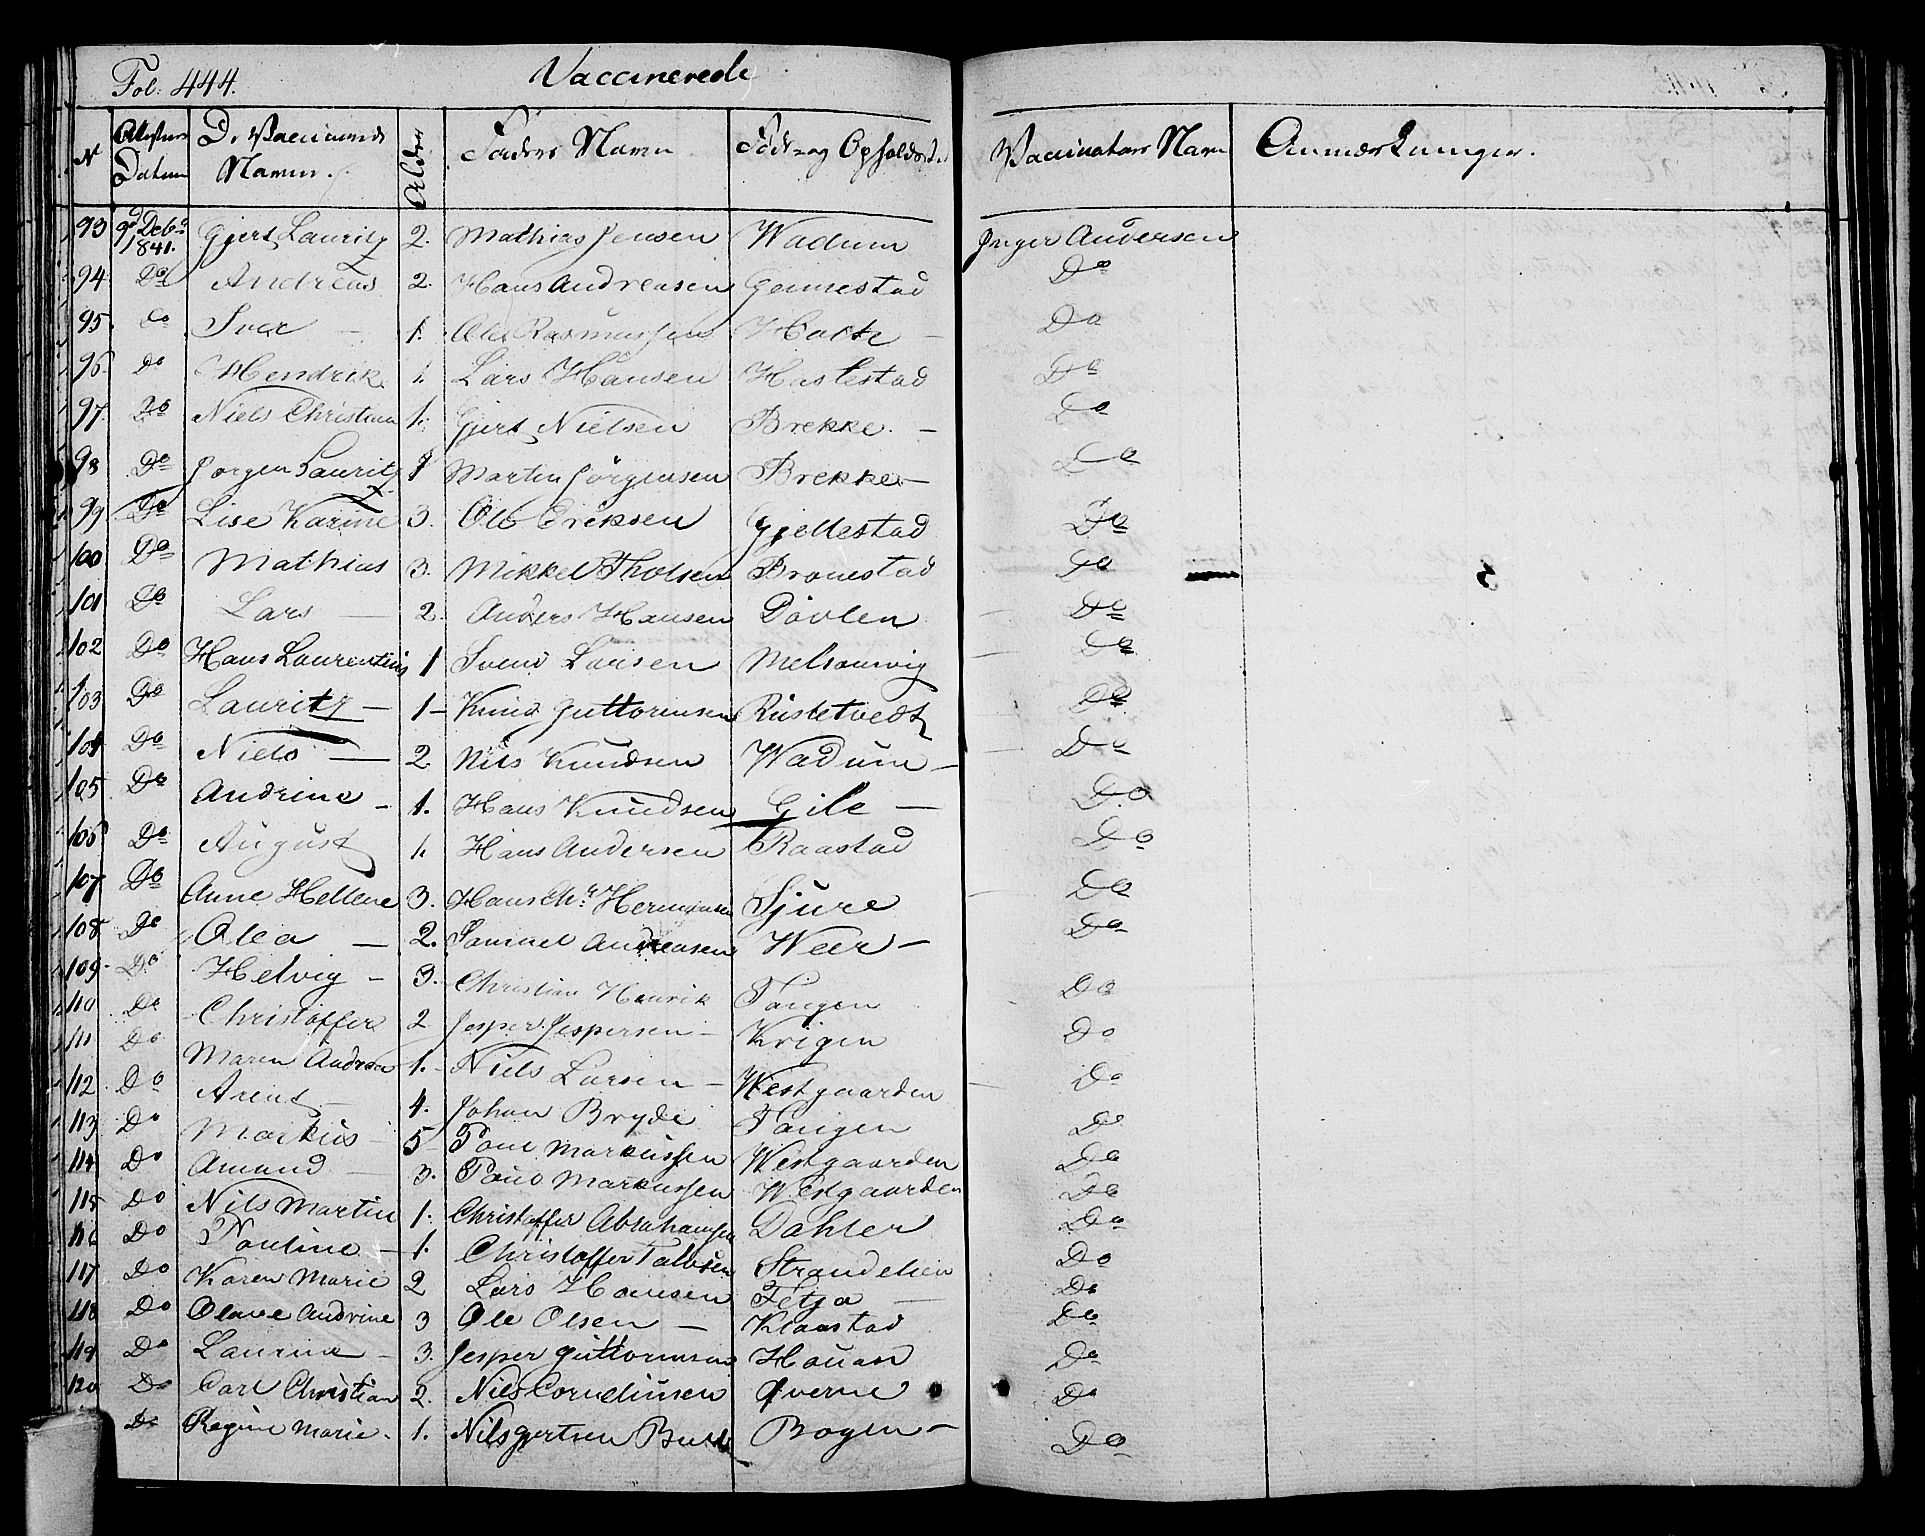 Fol: 444. Vaccinerede
N Attestens Datum D. Vaccinerede Navne. Alder Faders Navn Föde- og Opholdsst. Vaccinateurs Navn Anmærkninger.
93 9d Deb. 1841. Gjert Lauritz 2. Mathias Jensen Wadum Inger Andersen
94 Do Andreas 2. Hans Andreasen Gennestad Do
95. Do 1. Ole Rasmussen Do
96 Do Hendrik 1. Lars Hansen Hastestad Do
97. Do Niels Christian 1. Gjert Nielsen Brekke. — Do
98 Do Jörgen Lauritz 1 Martin Jörgensen Brekke — Do
99 Do Lise Karine 3. Ole Eriksen Gjellestad Do
100 Do Mathias 3. Mikkel Tholsen Bronestad Do
101 Do Lars — 2. Anders Hansen Dövlen Do
102 Do Hans Laurentius 1 Svend Larsen Melsomvig Do
103 Do Lauritz — 1 — Knud Guttormsen Rustetvedt Do
104 Do Niels — 2. Nils Knudsen Wadum — Do
105 Do Andrine — 1. Hans Knudsen Gile — Do
106 Do August 1. Hans Andersen Raastad Do
107 Do Anne Hellene 3. Hans Chr. Hermansen Sjure Do
108 Do Olea — 2. Samuel Andreasen Weer — Do
109. Do Helvig — 3. Christian Henrik Tangen Do
110 Do Christoffer 2 Jesper Jespersen — Krigen Do
111 Do Maren Andrea 1. Niels Larsen — Westgaarden Do
112 Do Arent — 4. Johan Bryde Tangen Do
113 Do Markus — 5 Poul Markussen Westgaarden Do
114 Do Amund — 3. Poul Markussen Westgaarden Do
115 Do Nils Martin 1. Christoffer Abrahamsen Dahler Do
116 Do Pouline — 1. Christoffer Strandelien Do
117 Do Karen Marie 2 Lars Hansen Fetja — Do
118 Do Olave Andrine 3 Ole Olsen — Klaastad Do
119 Do Laurine — 3. Jesper Guttormsen Houan Do
120 Do Carl Christian 2. Nils Corneliusen Qverne Do
Do Regine Marie. 1. Nils Gjertsen Bogen — Do